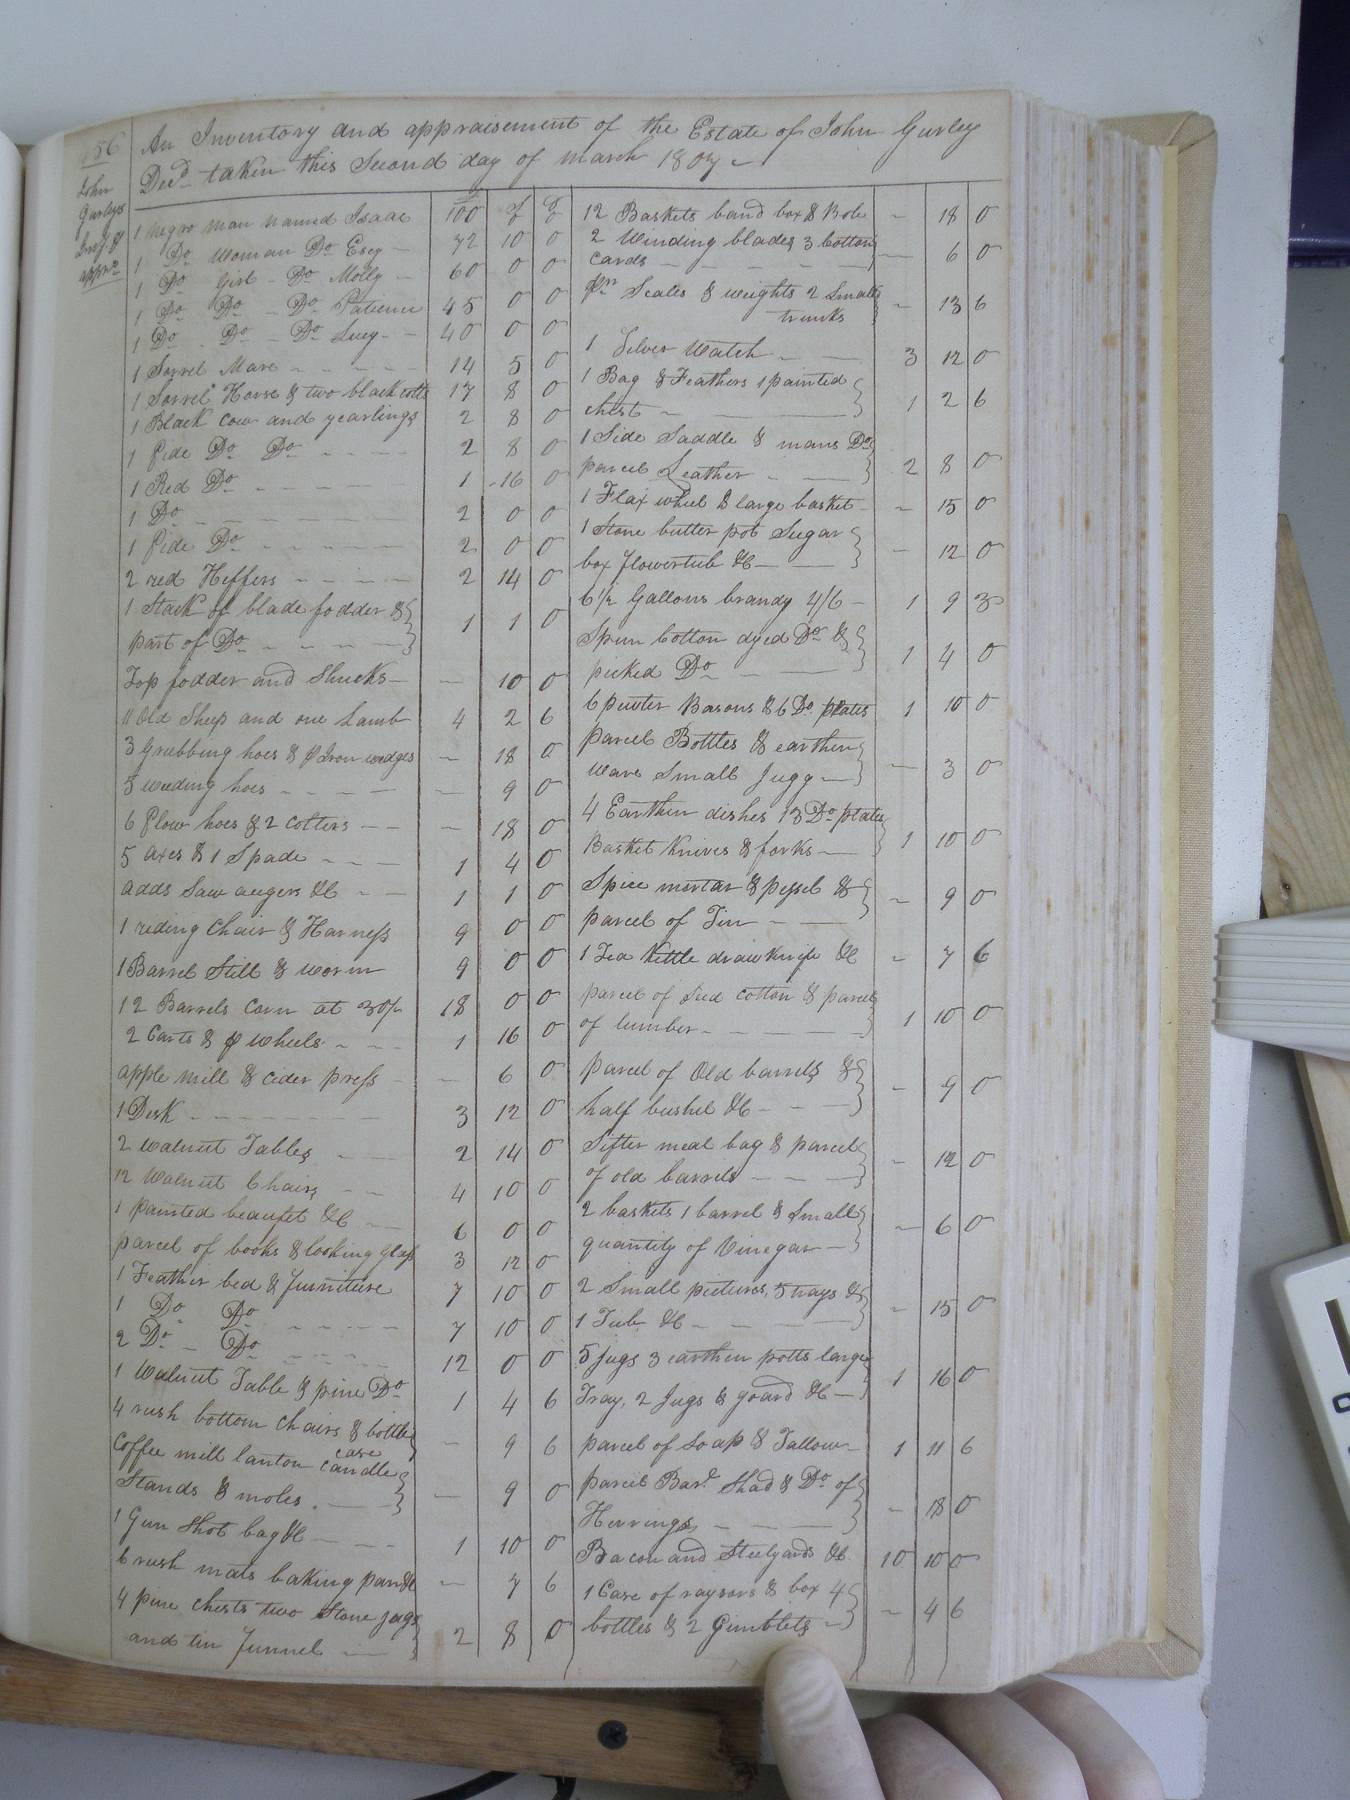 456
John
Gurleys
Inv.y &
appr.
An Inventory and appraisement of the Estate of John Gurley
Decd taken this Second day of march 1807
1 negro man named Isaac 100 0 0
1 Do Woman Do Esey 72 10 0
1 Do Girl Do Molly 60 0 0
1 Do Do Do Patience 45 0 0
1 Do Do Do Lucy 40 0 0
1 Sorrel Mare 14 5 0
1 Sorrel Horse & two black colts 17 8 0
1 Black Cow and yearlings 2 8 0
1 Pide Do Do 2 8 0
1 Red Do 1 16 0
1 Do 2 0 0
1 Pide Do 2 0 0
2 red Heffers 2 14 0
1 Stack of blade fodder &
part of Do 1 1 0
Top fodder and Shucks 10 0
11 Old Sheep and one Lamb 4 2 6
3 Grubbing hoes & pr Iron wedges 18 0
5 weeding hoes 9 0
6 Plow hoes & 2 Colters 18 0
5 axes & 1 Spade 1 4 0
adds Saw augers &C 1 1 0
1 riding Chair & Harness 9 0 0
1 Barrel Still & worm 9 0 0
12 Barrels Corn at 30/ 18 0 0
2 Carts & pr wheels 1 16 0
apple mill & cider press 6 0
1 Desk 3 12 0
2 Walnut Tables 2 14 0
12 Walnut Chairs 4 10 0
1 Painted beaufet &C 6 0 0
parcel of books & looking Glass 3 12 0
1 Feather bed & furniture 7 10 0
1 Do Do 7 10 0
2 Do Do 12 0 0
1 Walnut Table & pine Do 1 4 6
4 rush bottom Chairs & bottle
case 9 6
Coffee mill lanton candle
Stands & moles 9 0
1 Gun Shot bag &C 1 10 0
6 rush mats baking pan &C 7 6
4 pine Chests two Stone jugs
and tin Funnel 2 8 0
12 Baskets band box & Bole 18 0
2 Winding blades 3 Cotton
Cards 6 0
pr Scales & weights 2 Small
trunks 13 6
1 Silver Watch 3 12 0
1 Bag & Feathers 1 painted
chest 1 2 6
1 Side Saddle & mans Do
parcel Leather 2 8 0
1 Flax wheel & large basket 15 0
1 Stone butter pot Sugar
box flowertub &C 12 0
6 1/2 Gallons brandy 4/6 1 9 3
Spun Cotton dyed Do &
picked Do 1 4 0
6 pewter Basons & 6 Do plates 1 10 0
parcel Bottles & earthen
Ware Small Jugg 3 0
4 Earthen dishes 13 Do plates
Basket Knives & forks 1 10 0
Spice mortar & pessel &
parcel of Tin 9 0
1 Tea Kettle draw knife &C 7 6
parcel of Sied cotton & parcel
of lumber 1 10 0
parcel of Old barrels &
half bushel &C 9 0
Sifter meal bag & parcel
of old barrels 12 0
2 baskets 1 barrel & Small
quantity of Vinegar 6 0
2 Small pictures, 5 trays &
1 Tub &C 15 0
5 Jugs 3 earthen potts large
Tray, 2 Jugs & goard &C 1 16 0
parcel of Soap & Tallow 1 11 6
parcel Barl Shad & Do of
Herrings 18 0
Bacon and Steelyards &C 10 10 0
1 Case of raysors & box 4
bottles & 2 Gimblets 4 6